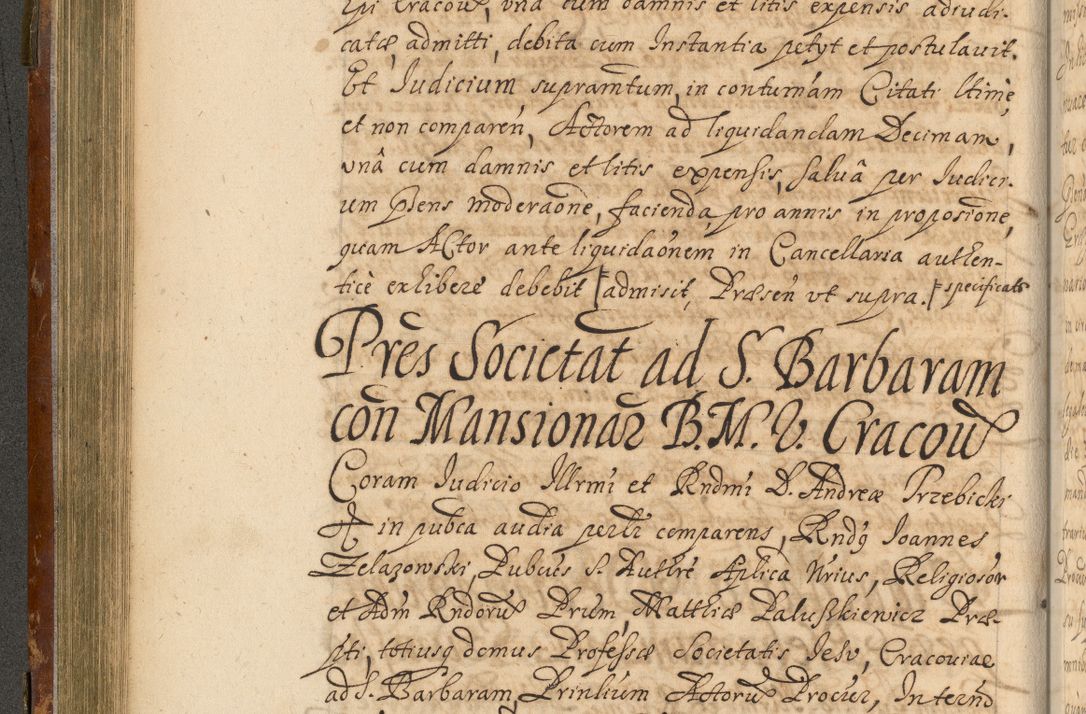 Epi Cracov, unâ cum damnis et litis expensis adiudi-
catæ admitti, debita cum Instantia petyt et postulavit.
Et Iudicium supramtum, in contumām Citati ltimè,
et non comparen, Actorem ad liquidandam Decimam,
unâ cum damnis et litis expensis, salvâ per Iudici-
um pns moderaone, facienda, pro annis in proposione,
quam Actor ante liquidaonem in Cancellaria authen-
ticè exhibere debebit admisit, Præsen ut supra. specificats
Pres Societat ad S. Barbaram
con Mansionar B. M. V. Cracov
Coram Iudicio Illrmi et Rndmi D. Andreæ Trzebicki
in pubca audia perlr comparens, Rndg Ioannes
Zelazowski, Pubcus S. Authre Aplica Nrius, Religiosor
et Adm Rndoru Prum, Matthiæ Paluszkiewicz Præ-
pti, totiusq domus Professæ Societatis Iesu, Cracoviae
ad S. Barbaram, Prinlium Actoru Procur, In terno